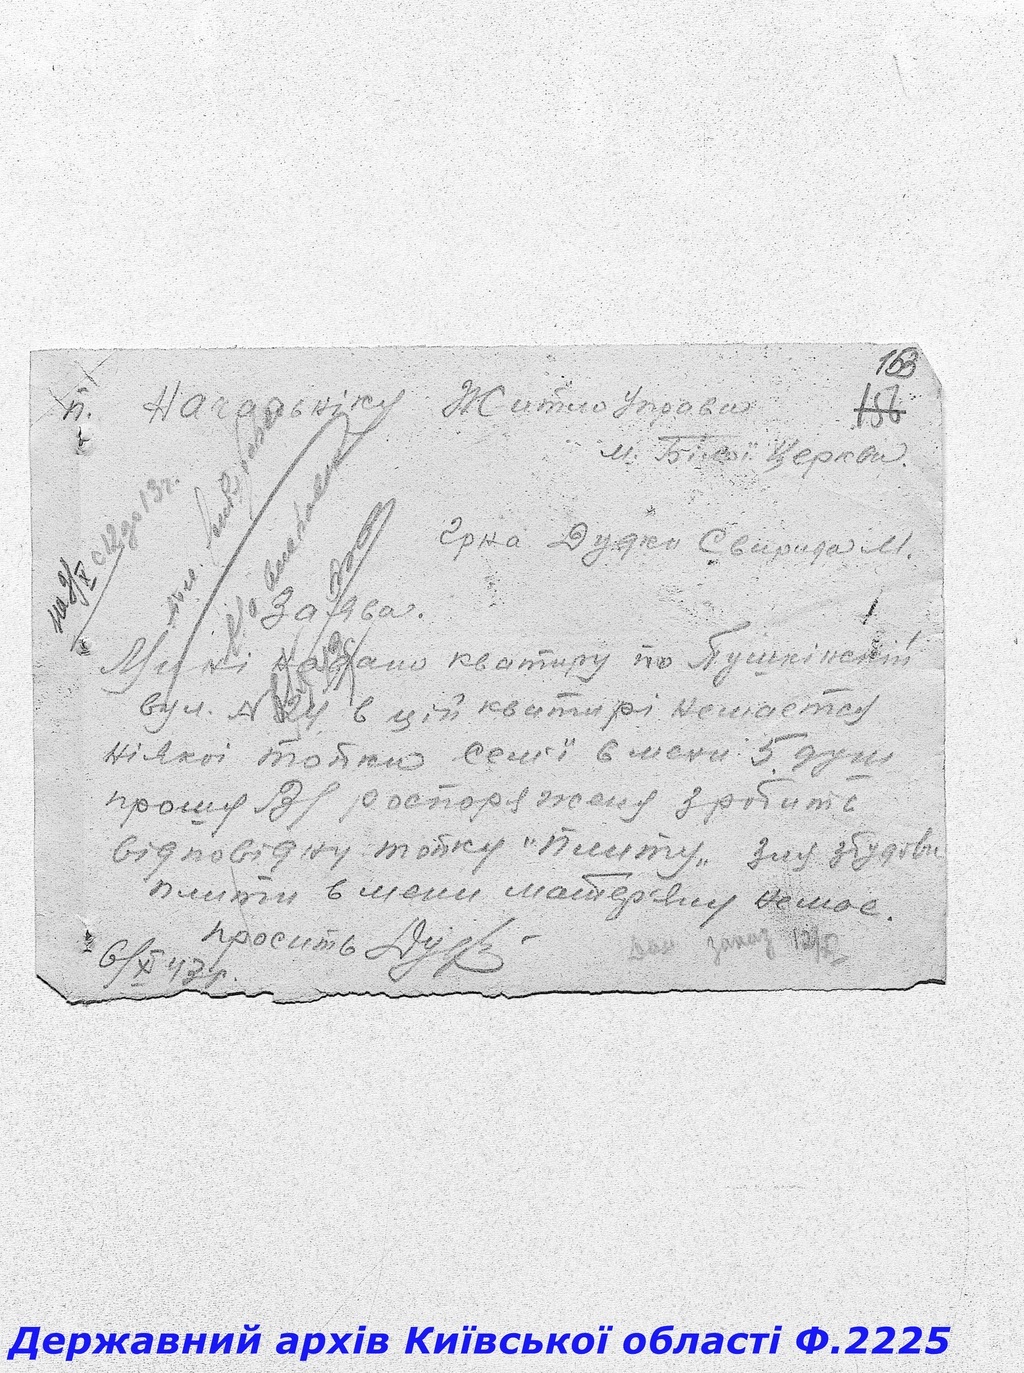 163
156
п. Начальніку Житло Управи
м. Білої Церкви.
Грна Дудки Свирида М.
на 9/X с 12 до 13 г.
Заява.
Мині надано кватиру по Пушкінській
вул. № 24 в цій квитирі немаєтся
ніякоі топки семї в мени 5 душ
прошу Ва роспоряженя зробить
відповідну топку "Плиту„ для збудови
плити в мени матерялу немає.
просить
6/XI 43 г.
заказ
Державний архів Київської області Ф.2225